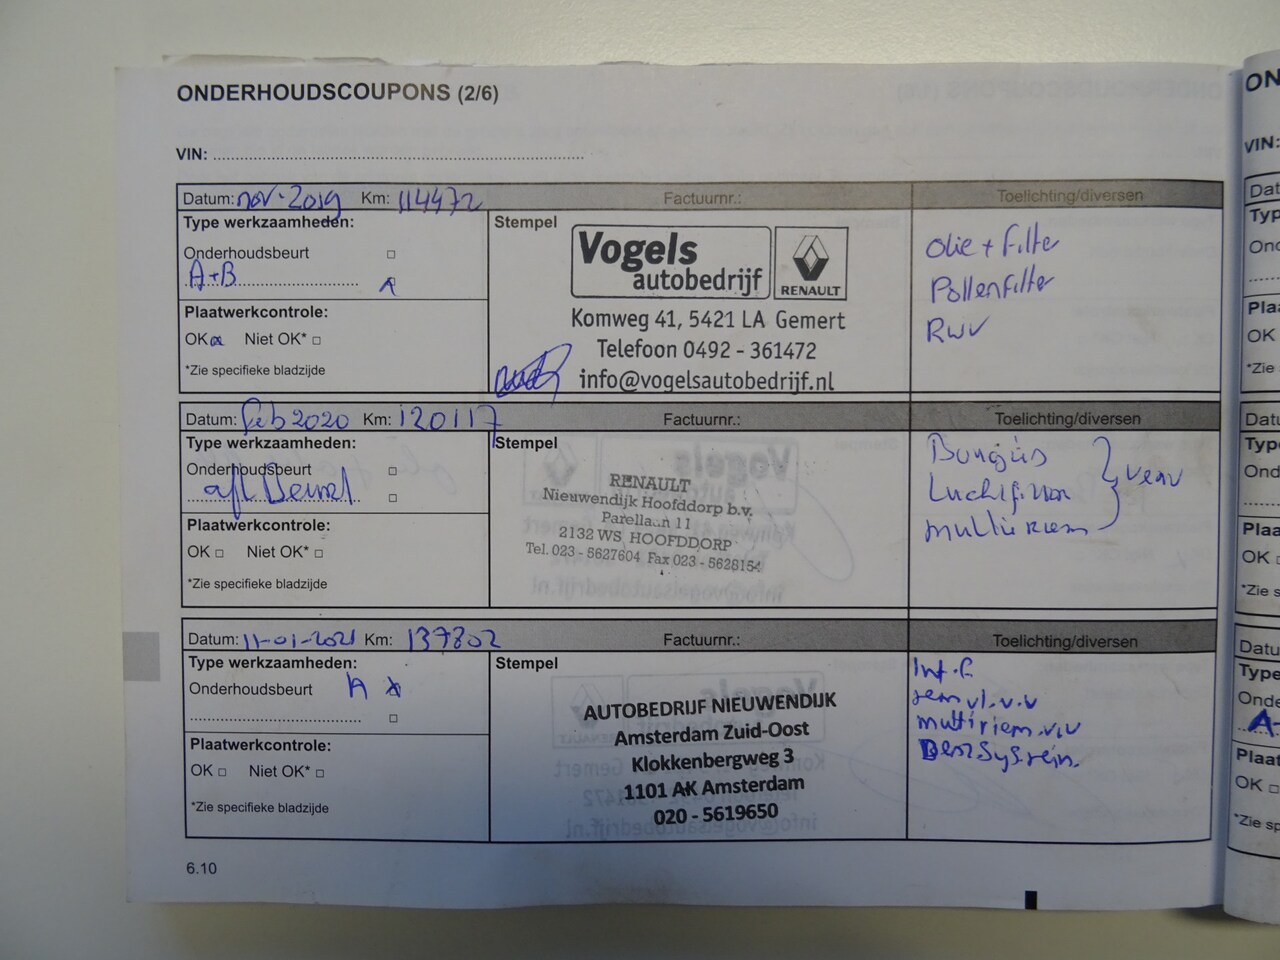 ONDERHOUDSCOUPONS (2/6)
VIN:
Datum: nov-2019 Km: 114472 Factuurnr.: Toelichting/diversen
Type werkzaamheden:
Stempel
Onderhoudsbeurt
A+B
Plaatwerkcontrole:
OK Niet OK*
*Zie specifieke bladzijde
Vogels
autobedrijf
RENAULT
Komweg 41, 5421 LA Gemert
Telefoon 0492 - 361472
info@vogelsautobedrijf.nl
Olie + Filter
Pollenfilter
RWV
Datum: feb 2020 Km: 120117 Factuurnr.: Toelichting/diversen
Type werkzaamheden:
Stempel
Onderhoudsbeurt
Plaatwerkcontrole:
OK Niet OK*
*Zie specifieke bladzijde
RENAULT
Nieuwendijk Hoofddorp b.v.
Parellaan 11
2132 WS HOOFDDORP
Tel. 023 - 5627604 Fax 023 - 5628154
Bougies
multiriem
Datum: 11-01-2021 Km: 137802 Factuurnr.: Toelichting/diversen
Type werkzaamheden:
Stempel
Onderhoudsbeurt A
Plaatwerkcontrole:
OK Niet OK*
*Zie specifieke bladzijde
AUTOBEDRIJF NIEUWENDIJK
Amsterdam Zuid-Oost
Klokkenbergweg 3
1101 AK Amsterdam
020 - 5619650
rem vl. v.v
multiriem.v.v
6.10
ON
VIN:
Dat
Typ
Ond
Plaa
OK
*Zie
Datu
Type
Ond
Plaa
OK
*Zie s
Datu
Type
Onde
A-
Plaat
OK
*Zie sp